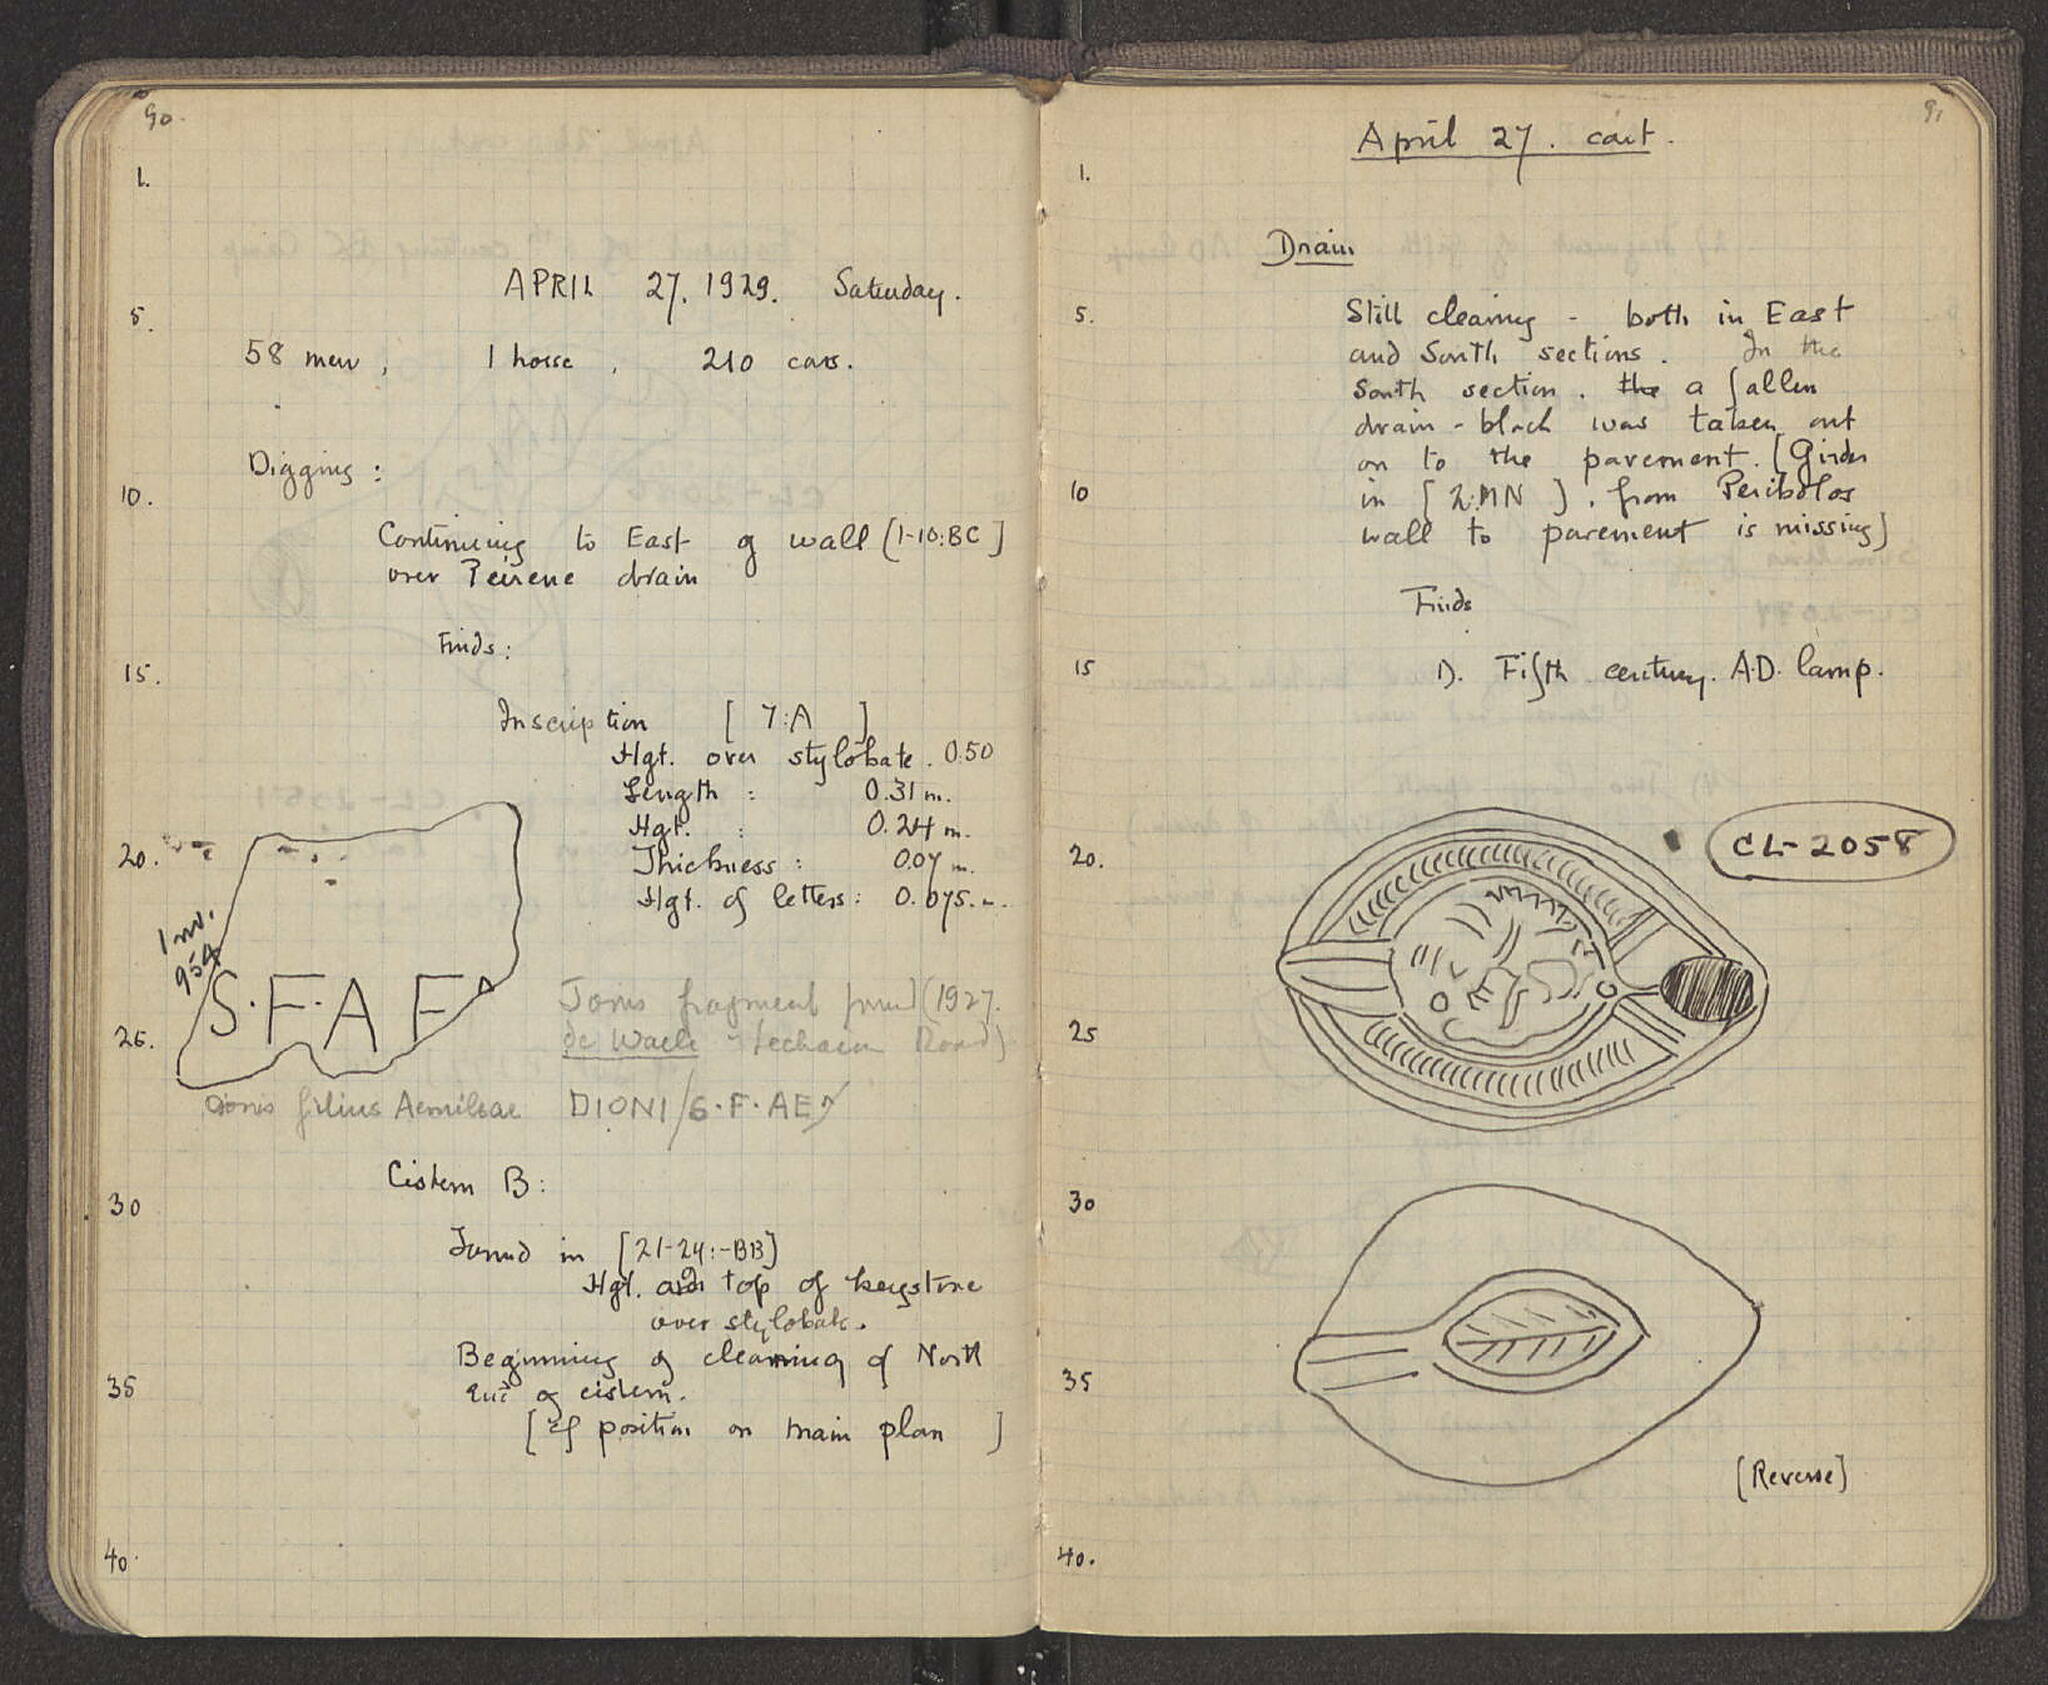 90.
1.
APRIL 27. 1929. Saturday.
5.
58 men, 1 horse, 210 cars.
Digging:
10.
Continuing to East of wall [1-10:BC]
over Peirene drain
Finds:
15.
Inscription [7:A]
Hgt. over stylobate. 0.50
Length : 0.31 m.
Hgt. : 0.24 m.
20.
Thickness : 0.07 m.
Hgt. of letters: 0.075. m.
Inv.
954
S.F.A E
Joins fragment found (1927.
25.
de Waele - Lechaeum Road)
Dionis filius Aemiliae DIONI/S.F.AE
Cistern B:
30
Found in [21-24:-BB]
Hgt. top of keystone
over stylobate.
Beginning of cleaning of North
35
end of cistern.
[Cf position on main plan ]
40.
91
April 27. cont.
1.
Drain
5.
Still clearing - both in East
and South sections. In the
South section. the a fallen
drain-block was taken out
on to the pavement. [Girder
10
in [2:MN]. from Peribolos
wall to pavement is missing]
Finds
15
1). Fifth century. A.D. lamp.
20.
CL-2058
25
30
35
[Reverse]
40.